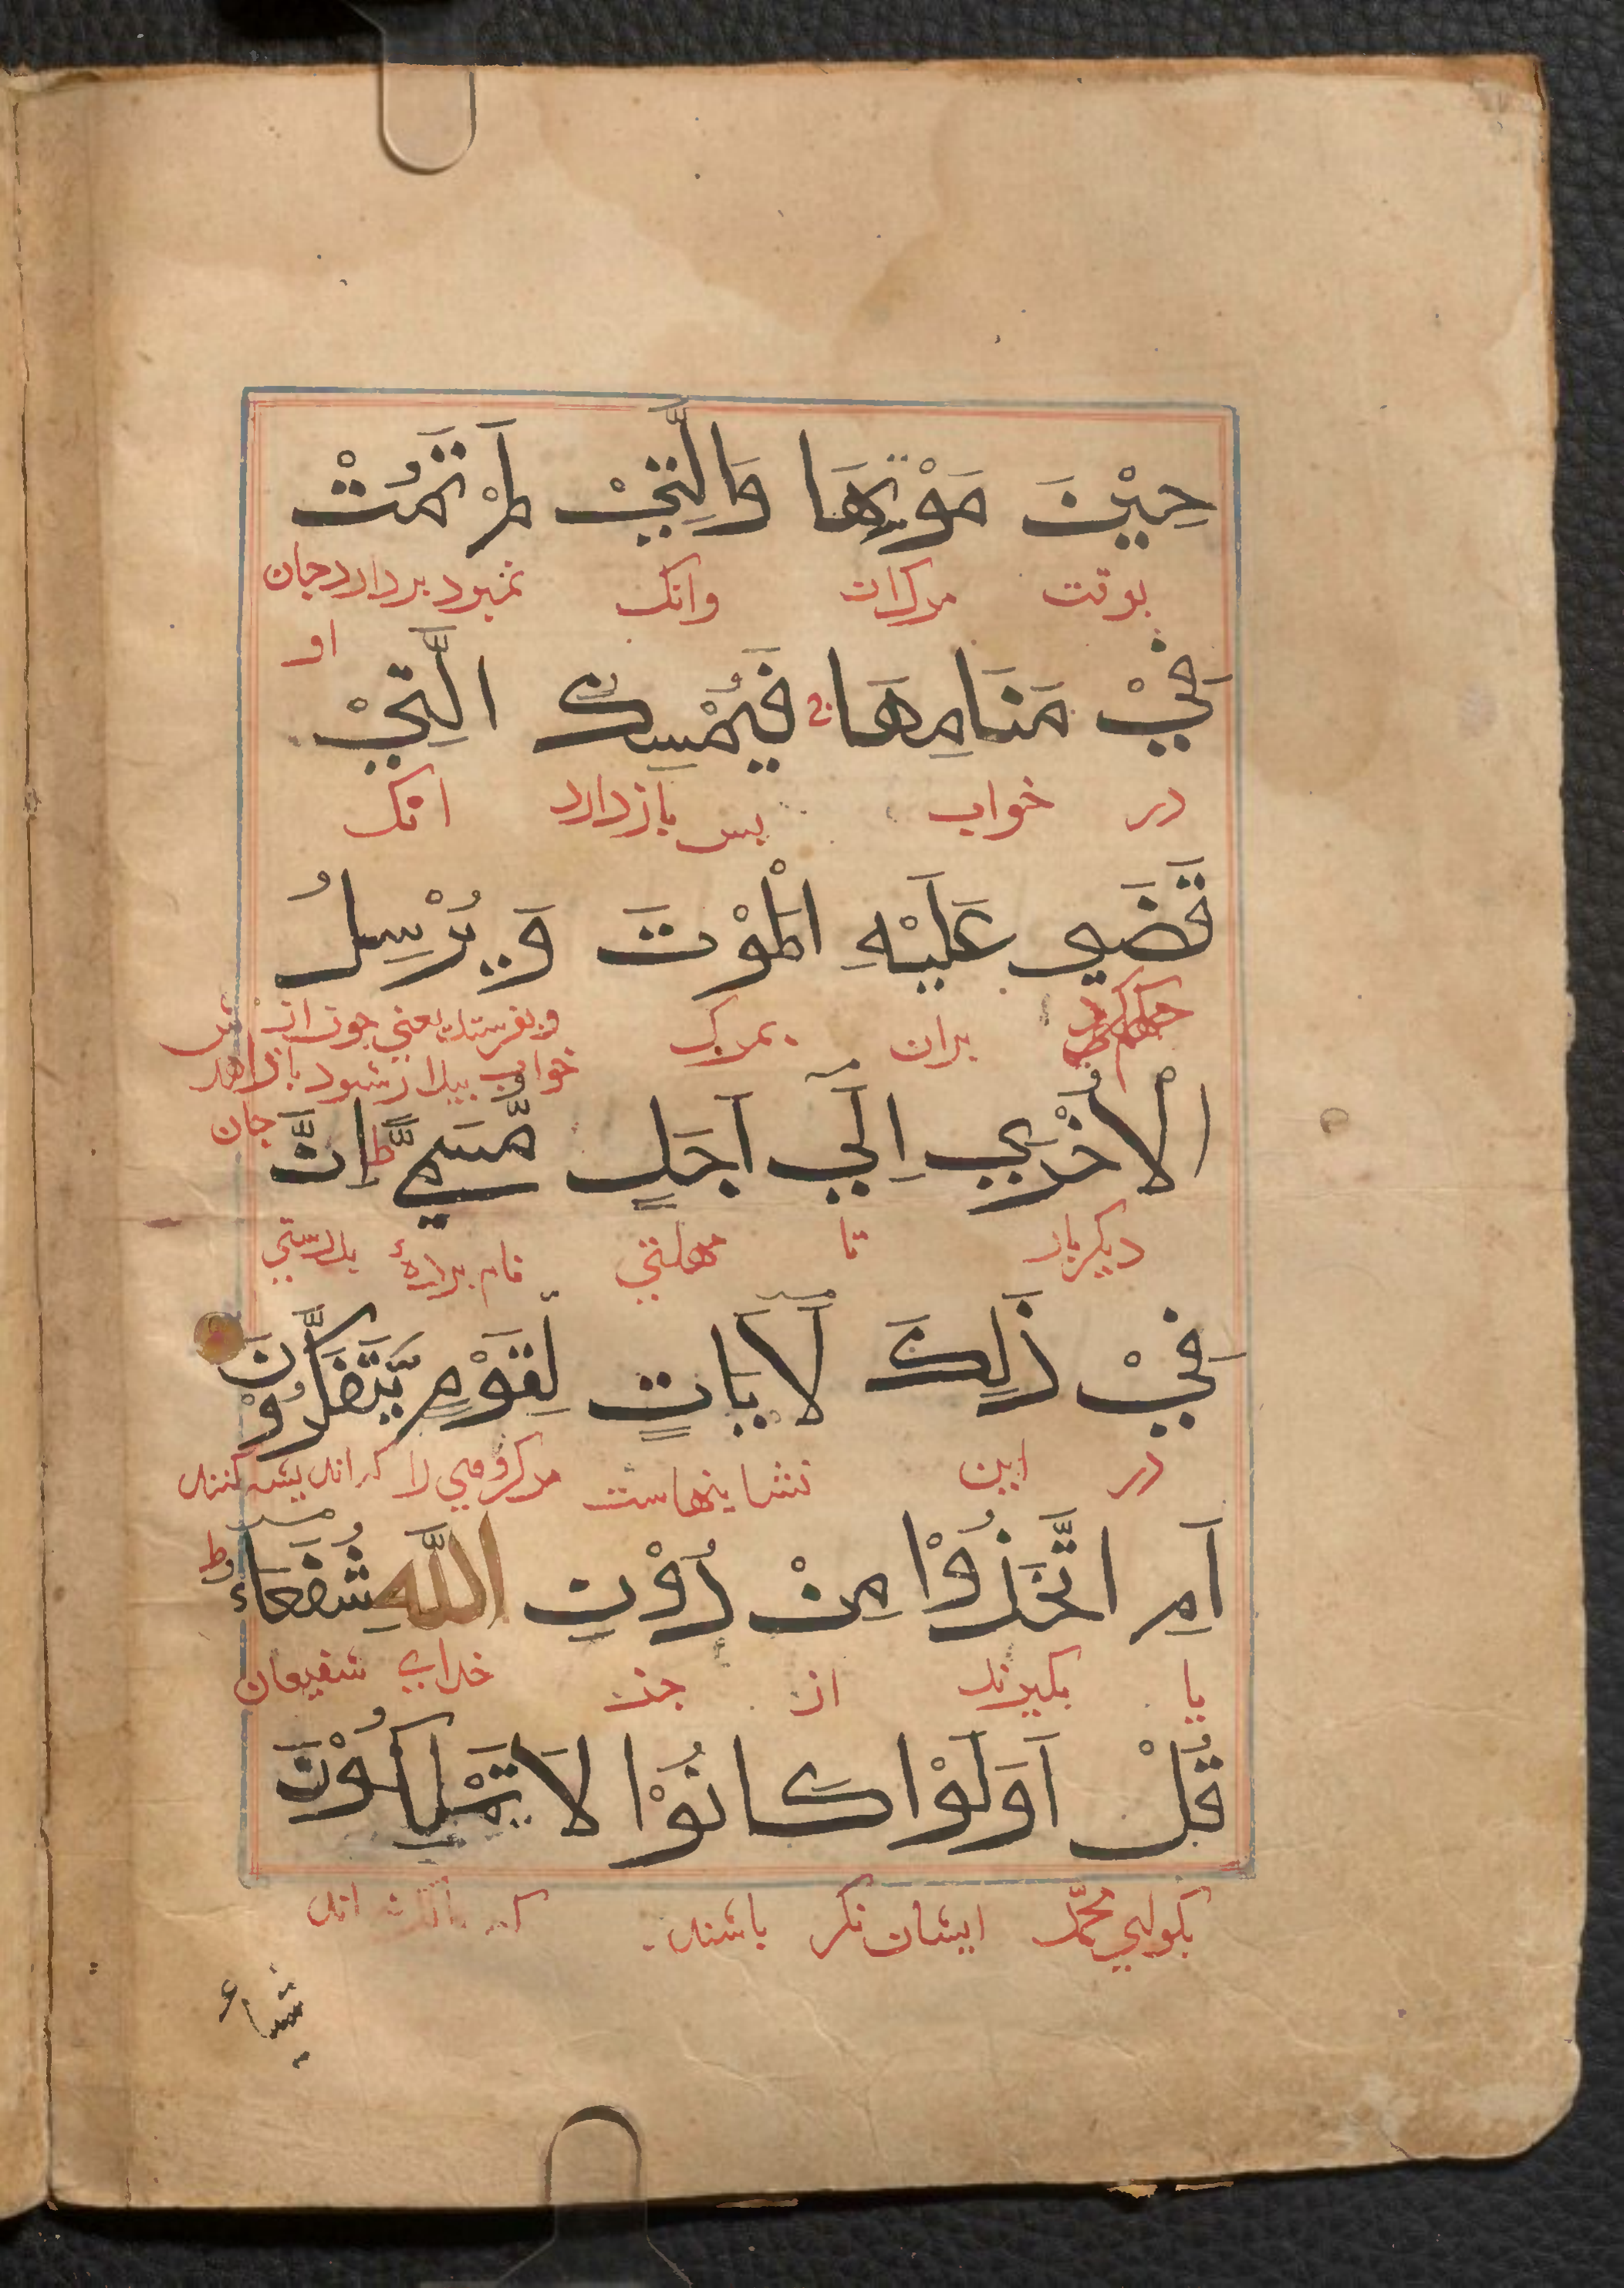 حِيْنَ مَوْتِهَا وَالَّتِيْ لَمْ تَمُتْ
بوقت مرک ان وانک نمیرد بردارد جان
او
فِيْ مَنَامِهَا ج فَيُمْسِكُ الَّتِيْ
در خواب بس بازدارد انک
قَضَي عَلَيْهِ الْمَوْتَ وَيُرْسِلُ
حکم کرد بران بمرک وبفرستد یعني جون ان
خواب بیدار شود باز دهد
جان
الْاُخْرَي اِلَي اَجَلٍ مُّسَمًّي ط اِنَّ
دیکر بار تا مهلتي نام برده بدرستي
فِيْ ذَلِكَ لَآيَاتٍ لِّقَوْمٍ يَّتَفَكَّرُوْنَ
در این نشاینهاست مر کروهي را که اندیشه کنند
اَمِ اتَّخَذُوْا مِنْ دُوْنِ اللَّهِ شُفَعَآءَ ط
یا بکیرند از جز خداي شفیعان
قُلْ اَوَلَوْ كَانُوْا لَا يَمْلِكُوْنَ
بکو اي محمّد ایشان نکر باشند که اند
شيـاء